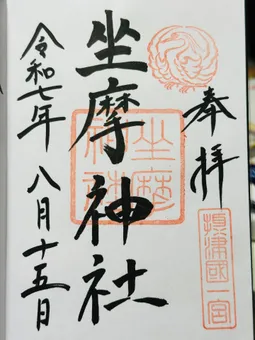 奉拝
摂津國一宮
坐摩神社
坐摩神社
令和七年 八月十五日